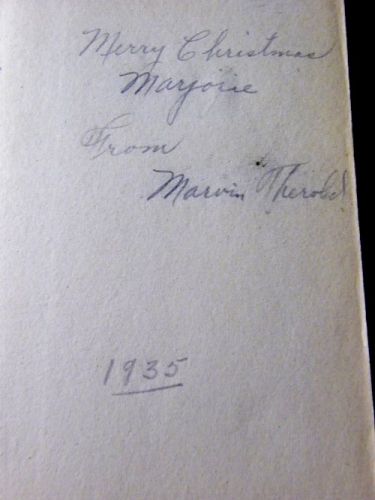 Merry Christmas
Marjorie
From
Marvin
1935